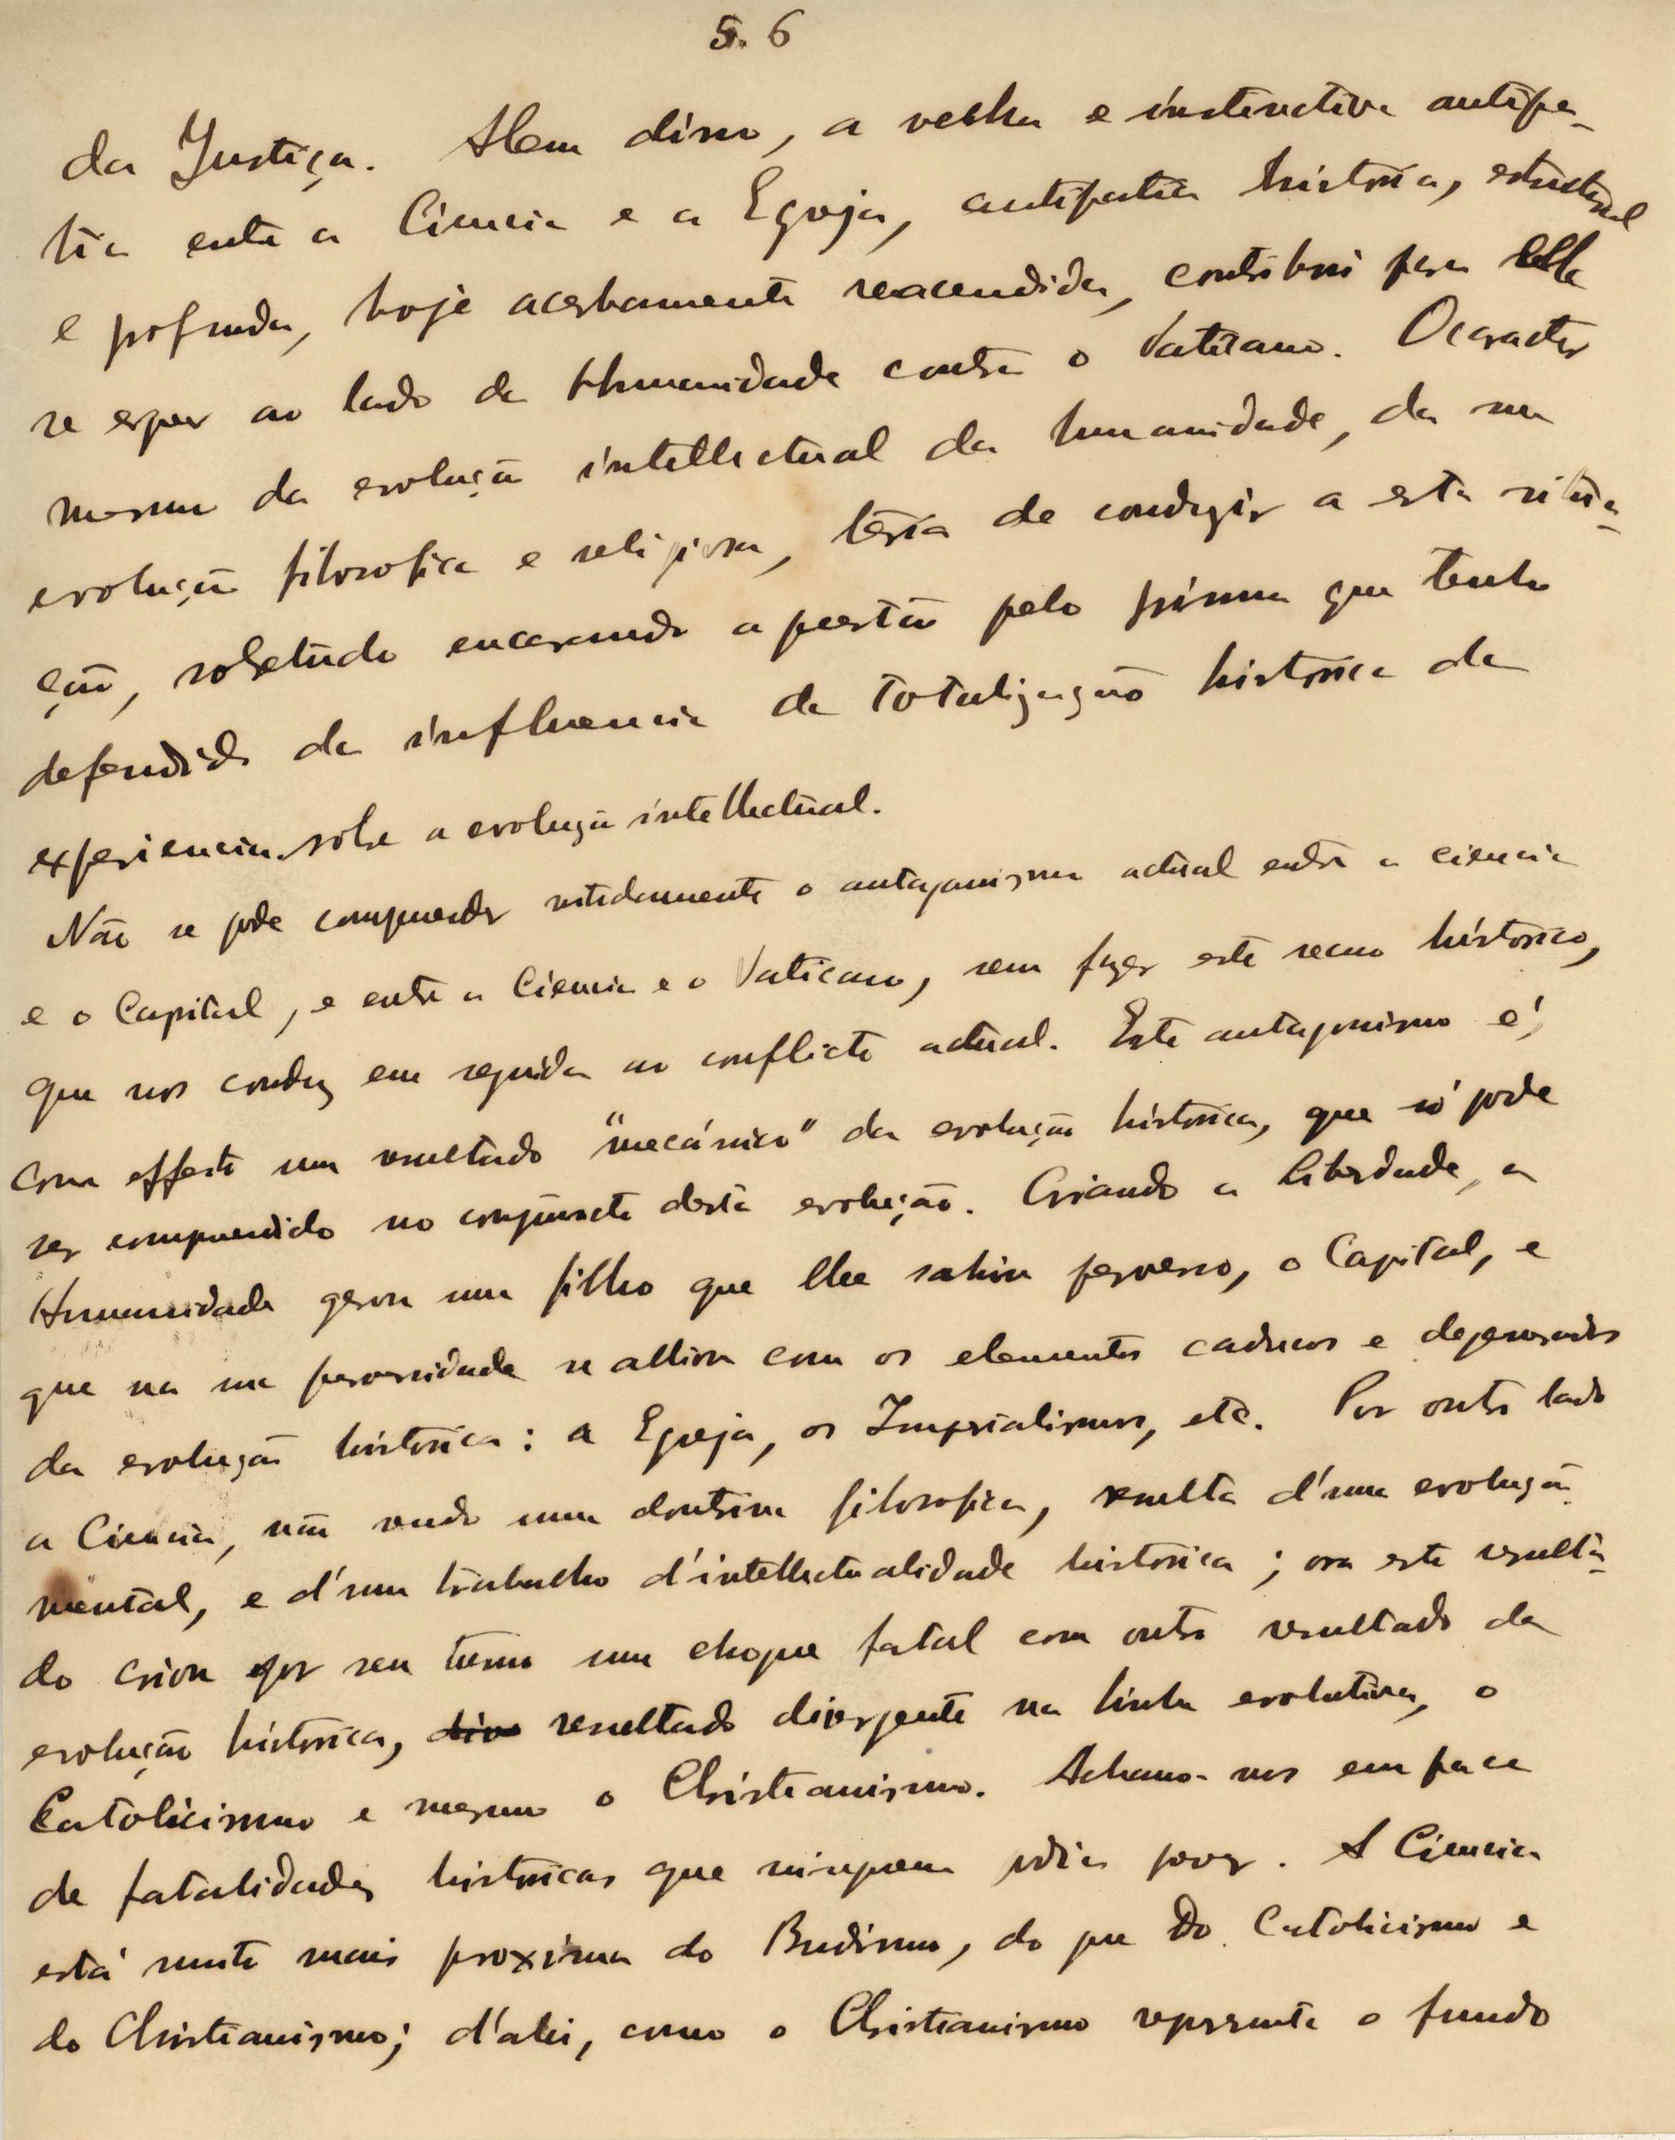 5. 6
da Justiça. Alem disso, a velha e instinctiva antipa-
tia entre a Ciencia e a Egreja, antipatia historica, estructural
e profunda, hoje acerbamente reacendida, contribui para ella
se erguer ao lado da Humanidade contra o Vaticano. O caracter
mesmo da evolução intellectual da humanidade, da sua
evolução filosofica e religiosa, teria de conduzir a esta situa-
ção, sobretudo encarando a questão pelo prisma que tenho
defendido da influencia da totalização historica da
experiencia sobre a evolução intellectual.
Não se pode compreender nitidamente o antagonismo actual entre a ciencia
e o Capital, e entre a Ciencia e o Vaticano, sem fazer este recuo histórico,
que nos conduz em seguida ao conflicto actual. Este antagonismo é,
com effeito um resultado "mecánico" da evolução histórica, que só pode
ser compreendido no conjuncto desta evolução. Criando a liberdade, a
Humanidade gerou um filho que lhe sahiu perverso, o Capital, e
que na sua perversidade se alliou com os elementos caducos e degenerados
da evolução histórica: a Egreja, os Imperialismos, etc. Por outro lado
a Ciencia, não sendo uma doutrina filosofica, resulta d'uma evolução
mental, e d'um trabalho d'intellectualidade historica; ora este resulta-
do criou por seu turno um choque fatal com outro resultado da
evolução histórica, resultado divergente na linha evolutiva, o
Catolicismo e mesmo o Christianismo. Achamo-nos em face
de fatalidades historicas que ninguem podia prever. A Ciencia
está muito mais proxima do Budismo, do que do Catolicismo e
do Christianismo; d'ahi, como o Christianismo representa o fundo